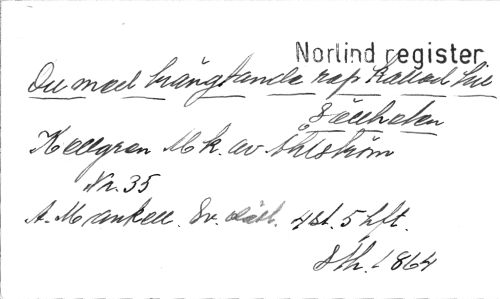 Norlind register
Du med trängtande rop kallad till
Sällheten
Kellgren Mk. av Åhlström
Nr. 35
A. Mankell. Sv. 4st. 5 hft.
Sth. 1864